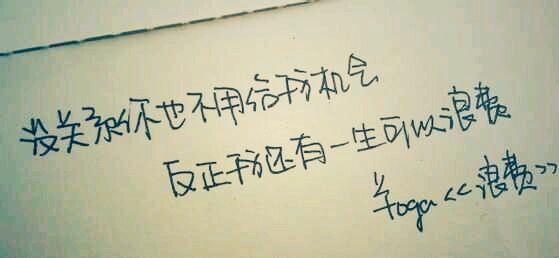 没关系你也不用给我机会
反正我还有一生可以浪费
羊oga<<浪费>>